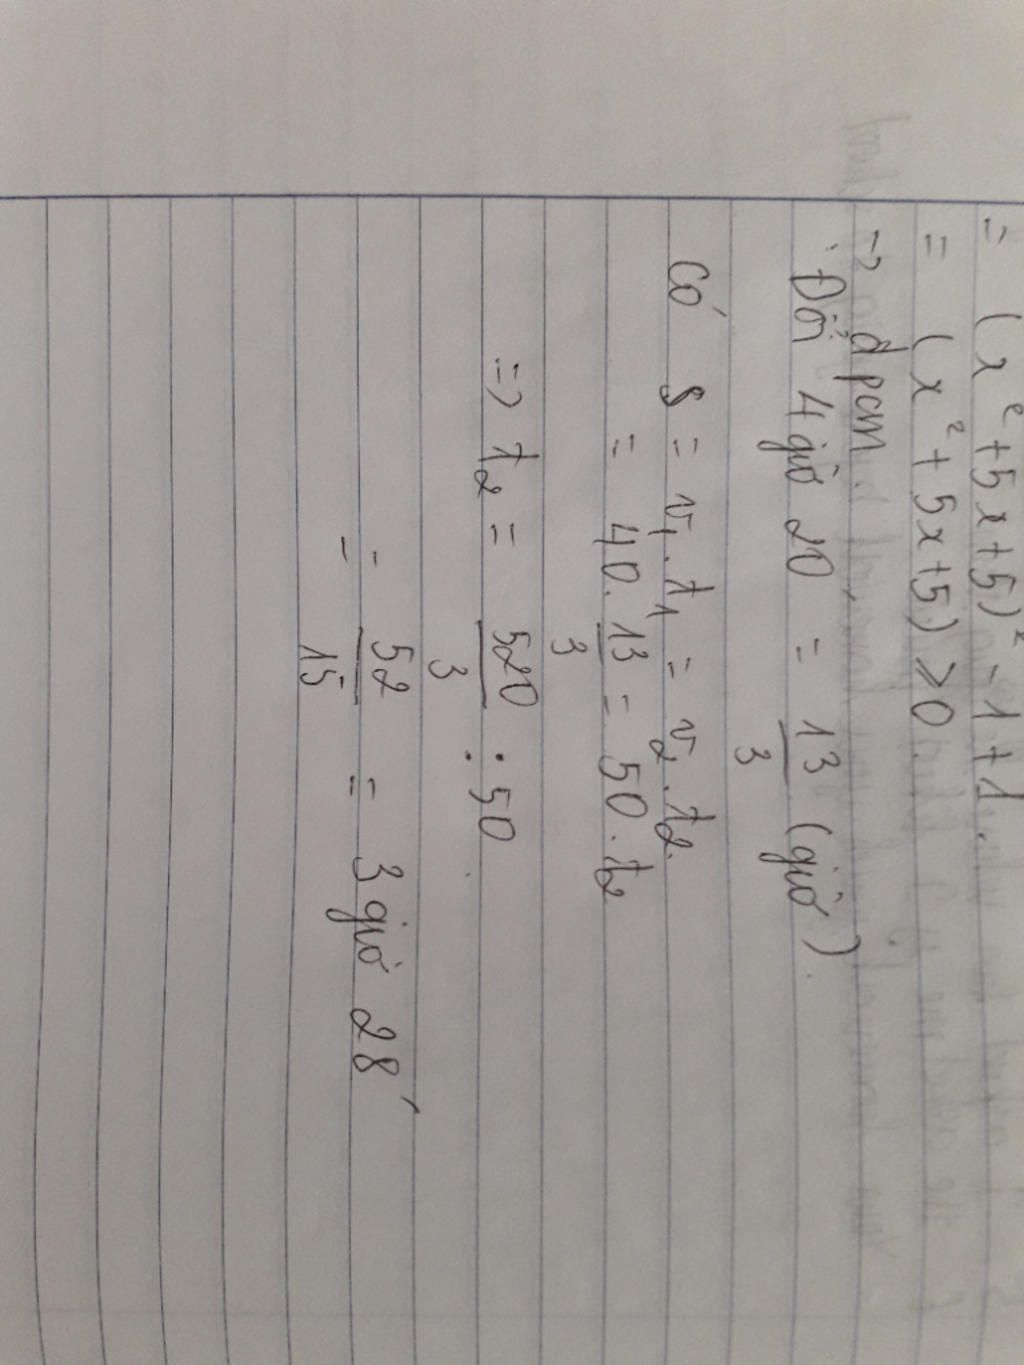 = (x²+5x+5)² -1+1.
= (x²+5x+5) ≥0.
-> đpcm.
Đổi 4 giờ 20 = 13/3 (giờ).
Có S = v₁.t₁ = v₂.t₂.
= 40. 13/3 = 50. t₂
=> t₂ = 520/3 : 50
= 52/15 = 3 giờ 28'